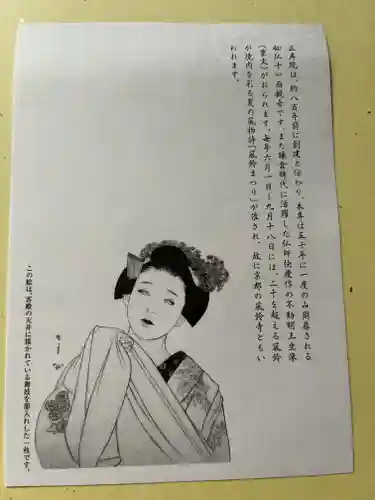 正寿院は、約八百年前に創建と伝わり、本尊は五十年に一度のみ開扉される
秘仏十一面観音です。また鎌倉時代に活躍した仏師快慶作の不動明王坐像
(重文)がおられます。毎年六月一日~九月十八日には、二千を超える風鈴
が境内を彩る夏の風物詩「風鈴まつり」が催され、故に京都の風鈴寺ともい
われます。
この絵は、客殿の天井に描かれている舞妓を墨入れした一枚です。